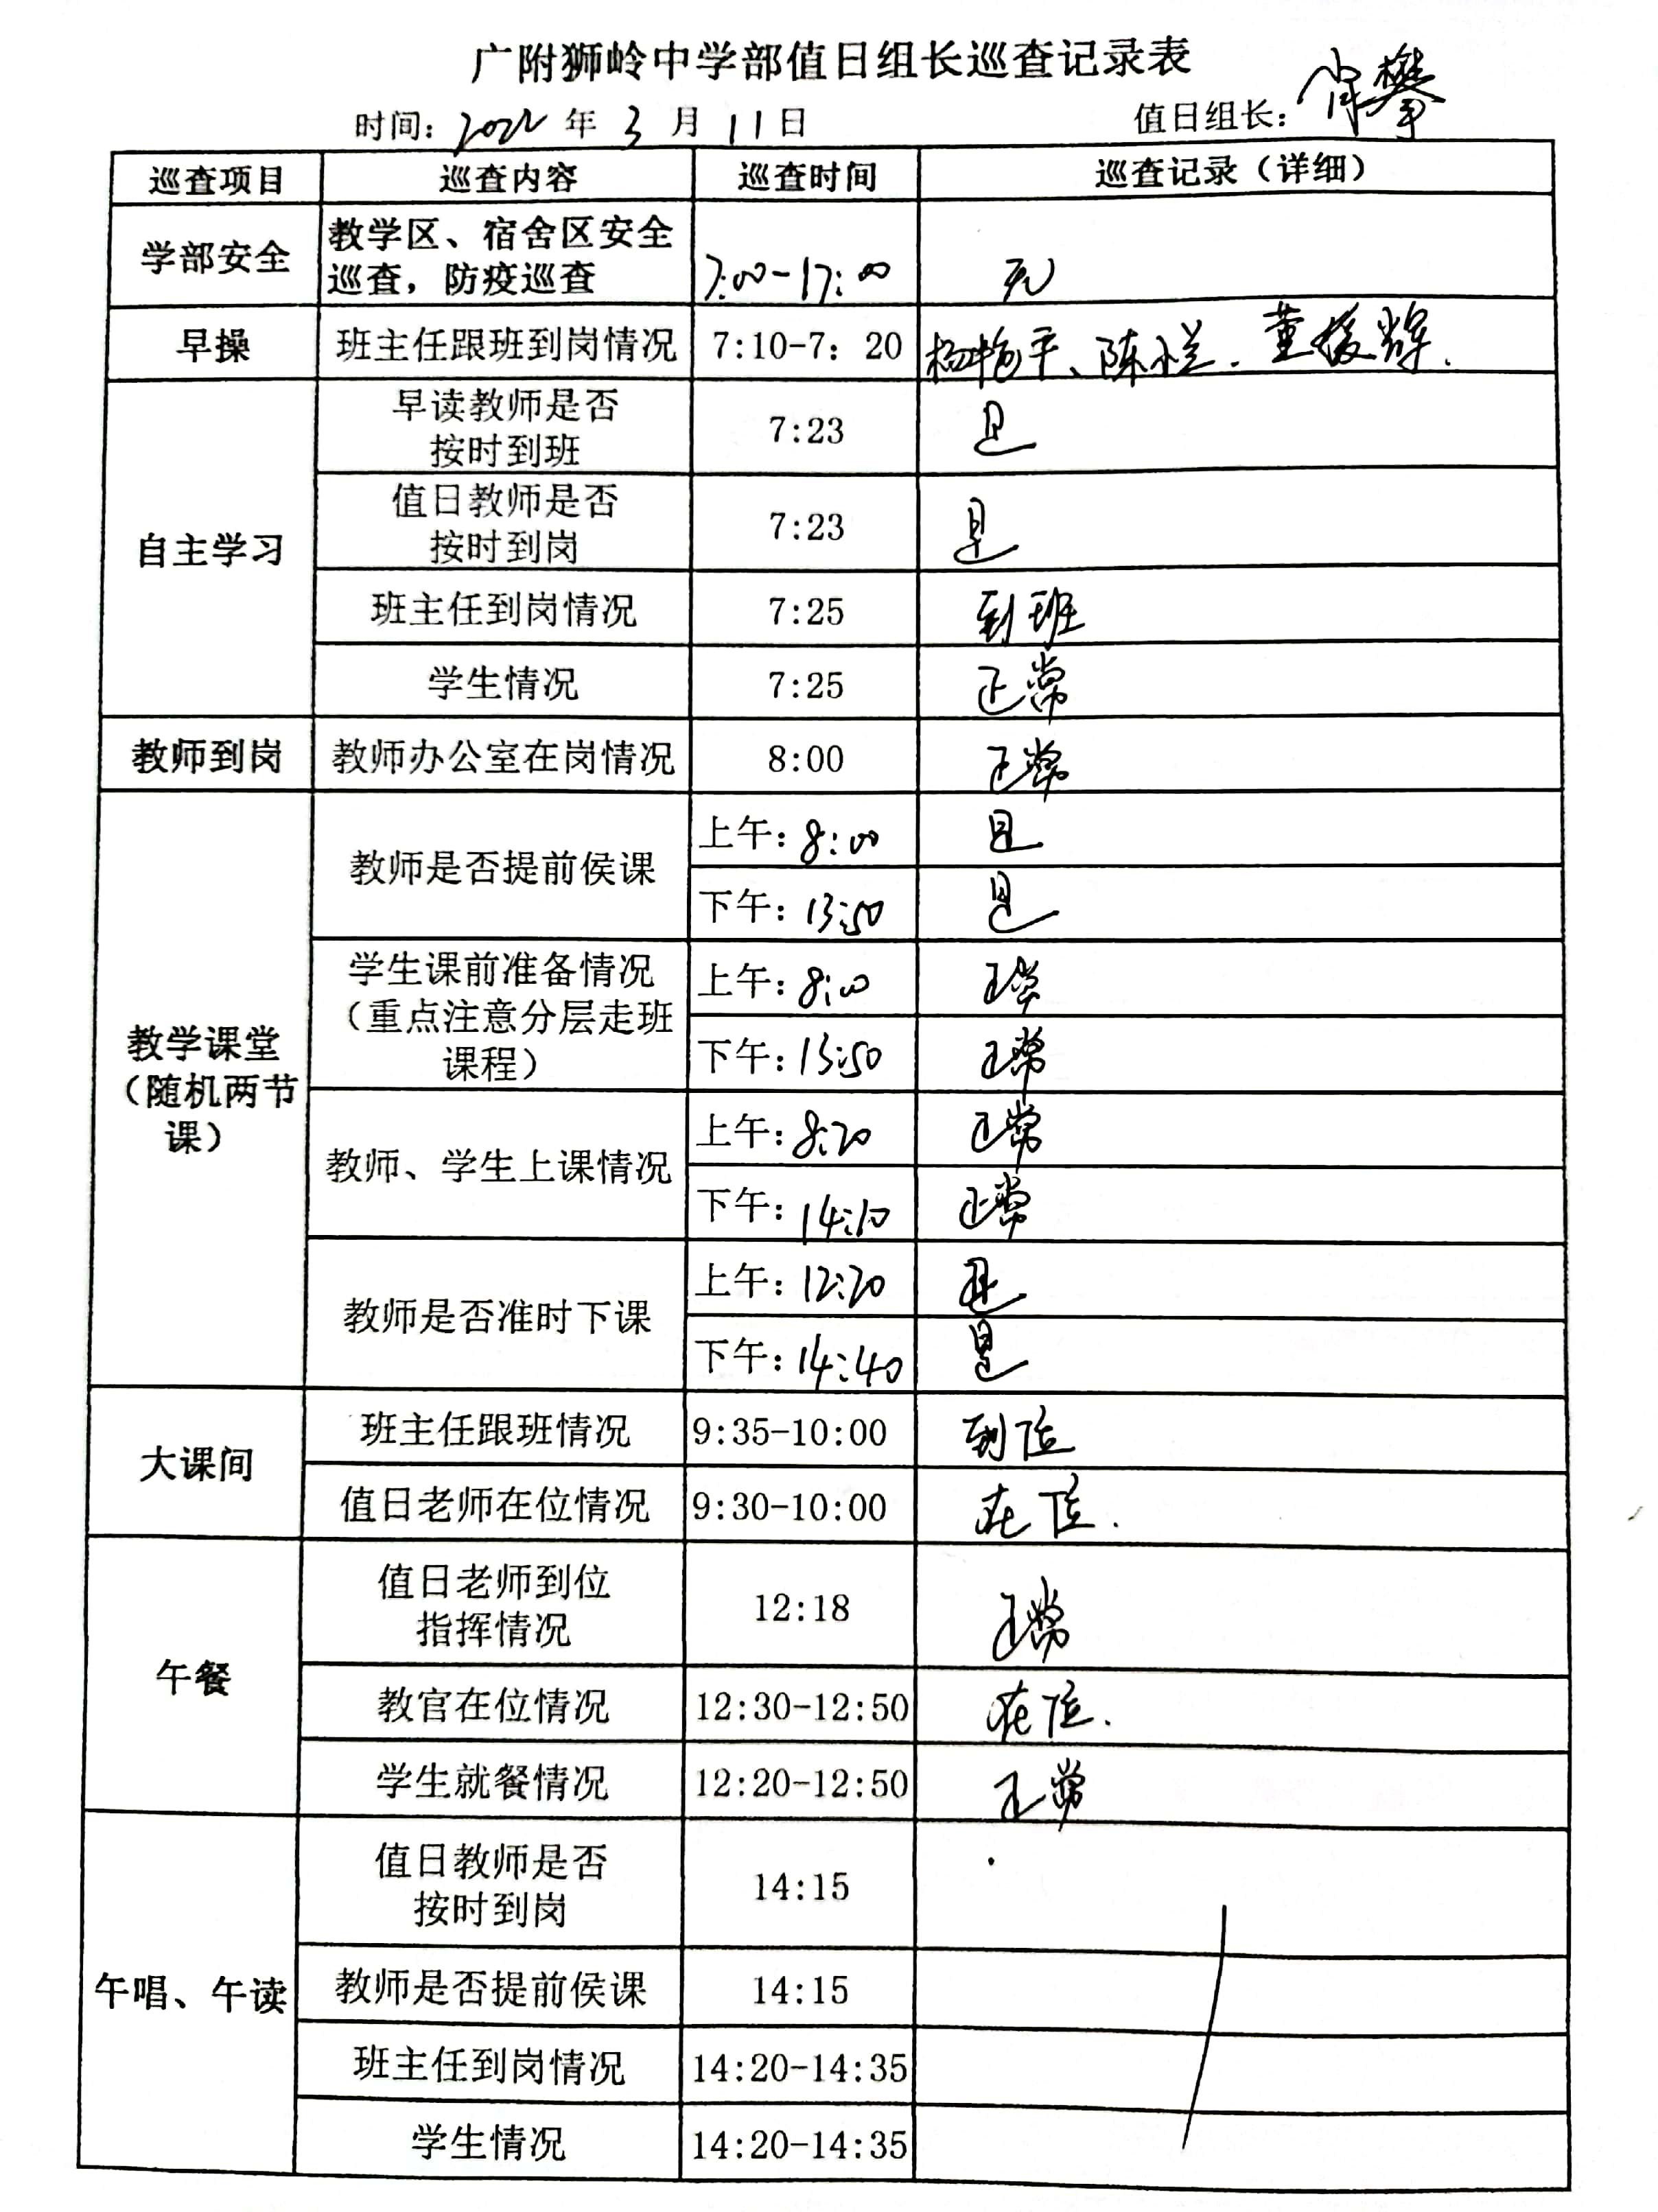 广附狮岭中学部值日组长巡查记录表
时间：2022年3月11日 值日组长：肖攀
巡查项目 巡查内容 巡查时间 巡查记录（详细）
学部安全 教学区、宿舍区安全
巡查，防疫巡查 7:00-17:00 无
早操 班主任跟班到岗情况 7:10-7：20 杨艳平、陈小兰、董援辉.
自主学习 早读教师是否
按时到班 7:23 是
值日教师是否
按时到岗 7:23 是
班主任到岗情况 7:25 到班
学生情况 7:25 正常
教师到岗 教师办公室在岗情况 8:00 正常
教学课堂
（随机两节
课）
教师是否提前侯课 上午：8:00 是
下午：13:50 是
学生课前准备情况
（重点注意分层走班
课程）
上午：8:00 正常
下午：13:50 正常
教师、学生上课情况 上午：8:20 正常
下午：14:10 正常
教师是否准时下课 上午：12:20 是
下午：14:40 是
大课间 班主任跟班情况 9:35-10:00 到位
值日老师在位情况 9:30-10:00 在位.
午餐 值日老师到位
指挥情况 12:18 正常
教官在位情况 12:30-12:50 在位.
学生就餐情况 12:20-12:50 正常
午唱、午读 值日教师是否
按时到岗 14:15
教师是否提前侯课 14:15
班主任到岗情况 14:20-14:35
学生情况 14:20-14:35